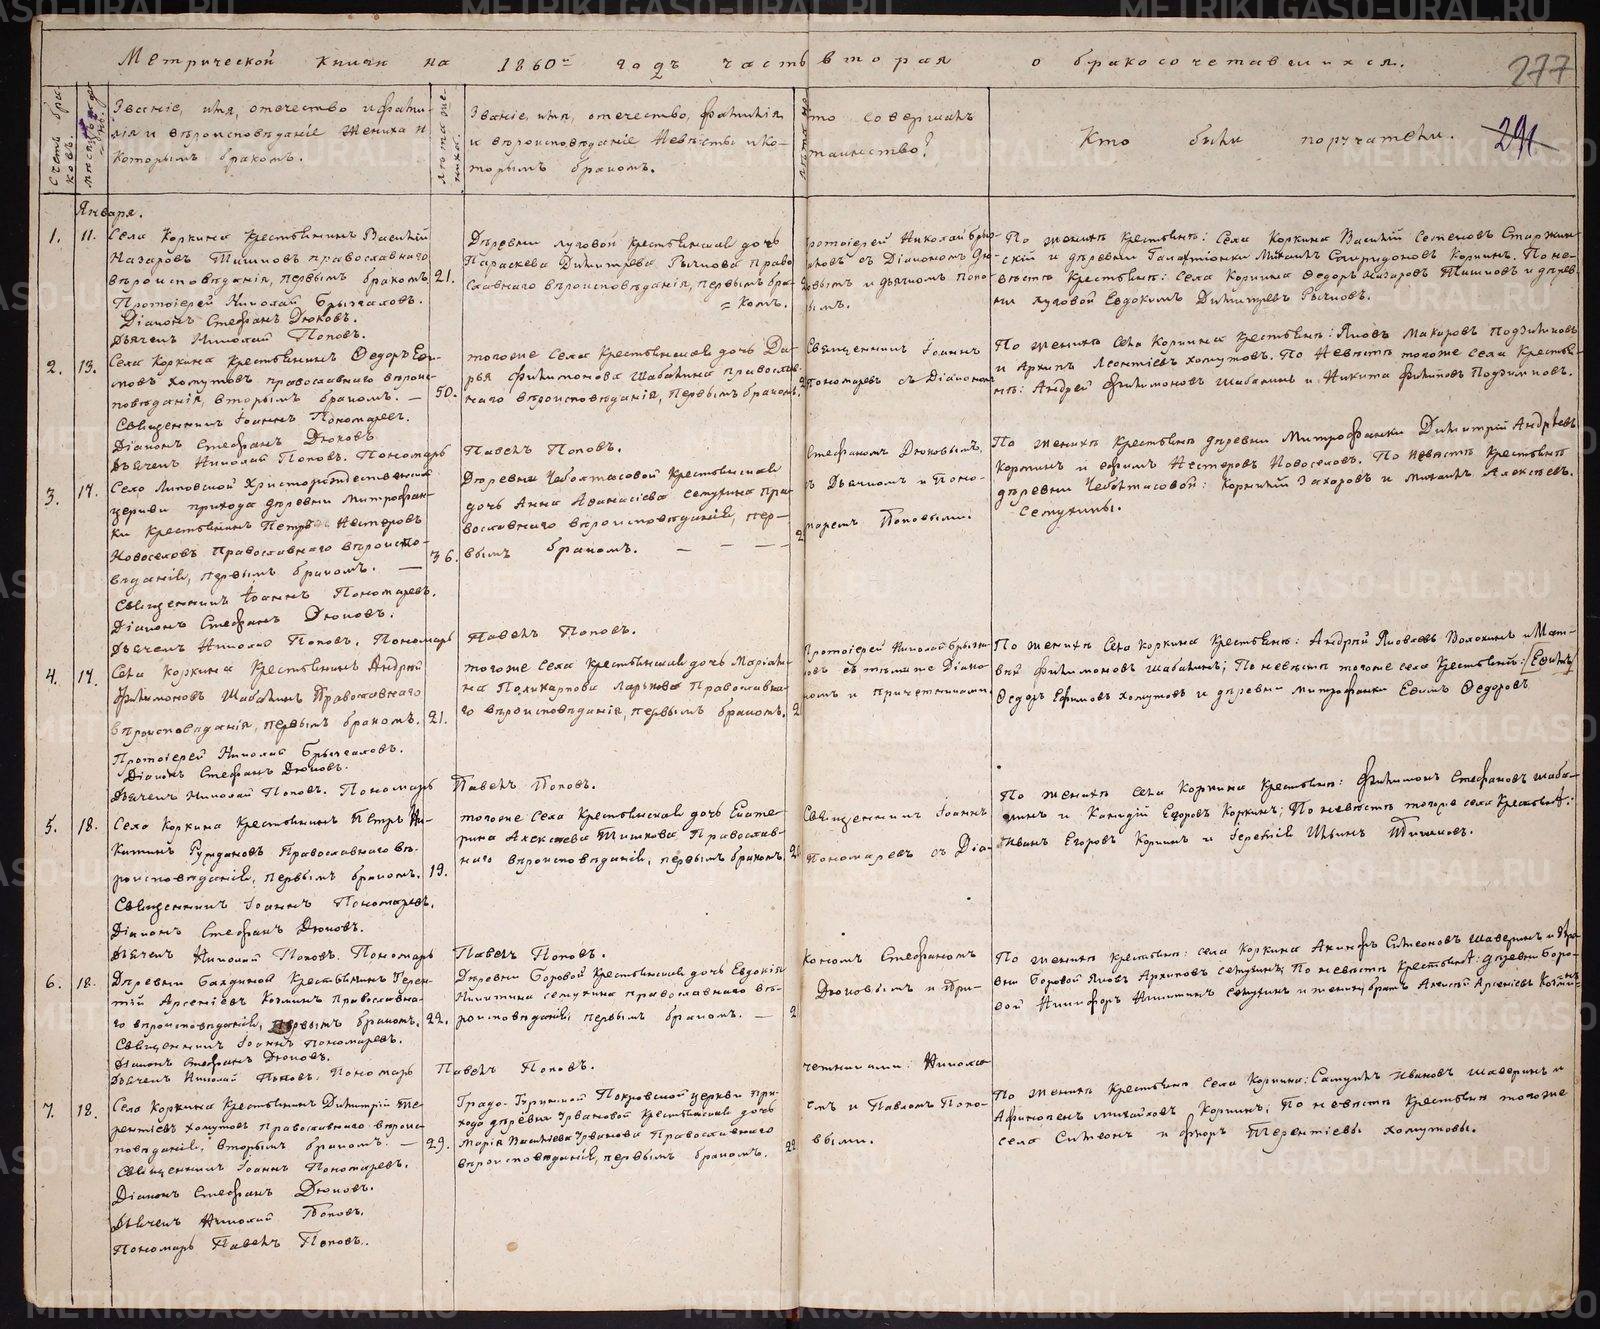 Метрической книги на 1860й годъ часть вторая о бракосочетавшихся.
277
291
Счетъ браковъ.
Мѣсяцъ и день.
Званіе, имя, отечество и фамилія и вѣроисповѣданіе жениха и которымъ бракомъ.
Лѣта жениха.
Званіе, имя, отечество, фамилія и вѣроисповѣданіе Невѣсты и которымъ бракомъ.
то совершалъ таинство?
Кто были поручатели.
Января.
1. 11.
Села Коркина Крестьянинъ Василій
Назаровъ Тишковъ православнаго
вѣроисповѣданія, первымъ бракомъ. 21.
Протоіерей Николай Брызгаловъ.
Діаконъ Стефанъ Дюковъ.
Дьячекъ Николай Поповъ.
Деревни луговой Крестьянская дочь
Параскева Димитрева Рычкова право
славнаго вѣроисповѣданія, первымъ бра-
= комъ.
ротоіерей Николай Брыз-
аловъ съ Діакономъ Дю-
ковымъ и дьячкомъ Попо-
вымъ.
По женихѣ Крестьяне: Села Коркина Василій Семеновъ Старжин-
скій и деревни Галактіонки Михаилъ Спиридоновъ Коркинъ. По не-
вѣстѣ Крестьяне: села Коркина Ѳедоръ Назаровъ Тишковъ и дерев-
ни луговой Евдокимъ Димитревъ Рычковъ.
2. 13.
Села Коркина Крестьянинъ Ѳедоръ Еѳи-
мовъ Хомутовъ православнаго вѣроис-
повѣданія, вторымъ бракомъ. — 50.
Священникъ Іоаннъ Пономаревъ.
Діаконъ Стефанъ Дюковъ.
Дьячекъ Николай Поповъ. Пономарь Павелъ Поповъ.
тогоже Села Крестьянская дочь Да-
рья Филимонова Шабалина православ-
наго вѣроисповѣданія, первымъ бракомъ.
Священникъ Іоаннъ
Пономаревъ съ Діакономъ
По женихѣ Села Коркина Крестьяне: Яковъ Макаровъ Подкиновъ
и Архипъ Леонтіевъ Хомутовъ. По Невѣстѣ тогоже села Крестья-
не: Андрей Филимоновъ Шабалинъ и Никита Филиповъ
3. 17.
Село Липовской Христорождественской
церкви прихода деревни Митрофан-
ки Крестьянинъ Петръ Нестеровъ
Новоселовъ Православнаго вѣроиспо- 36.
вѣданія, первымъ бракомъ. —
Священникъ Іоаннъ Пономаревъ.
Діаконъ Стефанъ Дюковъ.
Дьячекъ Николай Поповъ. Пономарь Павелъ Поповъ.
Деревни Чеболтасовой Крестьянская
дочь Анна Аѳанасіева Семухина пра-
вославнаго вѣроисповѣданія, пер-
вымъ бракомъ. — — —
Стефаномъ Дюковымъ,
съ Дьячкомъ и Поно-
маремъ Поповыми.
По женихѣ Крестьяне деревни Митрофанки Димитрій Андреевъ
Коркинъ и Ефимъ Нестеровъ Новоселовъ. По невѣстѣ Крестьяне
деревни Чеболтасовой: Корнилій Захаровъ и Михаилъ Алексѣевъ
Семухины.
4. 17.
Села Коркина Крестьянинъ Андрей
Филимоновъ Шабалинъ Православнаго
вѣроисповѣданія, первымъ бракомъ. 21.
Протоіерей Николай Брызгаловъ.
Діаконъ Стефанъ Дюковъ.
Дьячекъ Николай Поповъ. Пономарь Павелъ Поповъ.
тогоже Села Крестьянская дочь Маріам-
на Поликарпова Ларькова Православна-
го вѣроисповѣданія, первымъ бракомъ. 2
Протоіерей Николай Брызга-
ловъ съ тѣмъже Діако-
номъ и причетниками
По женихѣ Села Коркина Крестьяне: Андрей Яковлевъ Волохинъ и Мат-
вѣй Филимоновъ Шабалинъ; По невѣстѣ тогоже села Крестьяне: Ефимъ
Ѳедоръ Ефимовъ Хомутовъ и деревни Митрофанки Ефимъ Ѳедоровъ
5. 18.
Села Коркина Крестьянинъ Петръ Ни-
китинъ Православнаго вѣ-
роисповѣданія, первымъ бракомъ. 19.
Священникъ Іоаннъ Пономаревъ.
Діаконъ Стефанъ Дюковъ.
Дьячекъ Николай Поповъ. Пономарь Павелъ Поповъ.
тогоже Села Крестьянская дочь Екате-
рина Алексѣева Тишкова Православ-
наго вѣроисповѣданія, первымъ бракомъ.
Священникъ Іоаннъ
Пономаревъ съ Діа-
По женихѣ Села Коркина Крестьяне: Филимонъ Стефановъ Шаба-
линъ и Егоровъ Коркинъ; По невѣстѣ тогоже села Крестьяне:
Иванъ Егоровъ Коркинъ и Ильинъ Тишковъ.
6. 18.
Деревни Крестьянинъ Терен-
тій Арсеніевъ Козминъ православна-
го вѣроисповѣданія, первымъ бракомъ. 22.
Священникъ Іоаннъ Пономаревъ.
Діаконъ Стефанъ Дюковъ.
Дьячекъ Николай Поповъ. Пономарь Павелъ Поповъ.
Деревни Боровой Крестьянская дочь Евдокія
Никитина Семухина православнаго вѣ-
роисповѣданія, первымъ бракомъ. — 2
кономъ Стефаномъ
Дюковымъ и при-
четниками: Никола-
По женихѣ Крестьяне: села Коркина Акинфъ Симеоновъ Шаверинъ и дере-
вни Боровой Яковъ Архиповъ Семухинъ; По невѣстѣ Крестьяне: деревни Боро-
вой Никифоръ Никитинъ Семухинъ и жениху братъ Алексѣй Арсеніевъ Козминъ
7. 18.
Села Коркина Крестьянинъ Димитрій Те-
рентіевъ Хомутовъ православнаго вѣроис-
повѣданія, вторымъ бракомъ — 29.
Священникъ Іоаннъ Пономаревъ.
Діаконъ Стефанъ Дюковъ.
Дьячекъ Николай Поповъ.
Пономарь Павелъ Поповъ.
Градо-Туринской Покровской церкви при-
хода деревни Урвановой Крестьянская дочь
Марія Урванова Православнаго
вѣроисповѣданія, первымъ бракомъ. 22
емъ и Павломъ Попо-
выми.
По женихѣ Крестьяне села Коркина: Самуилъ Ивановъ Шаверинъ и
Михайловъ Коркинъ; По невѣстѣ Крестьяне тогоже
села Симеонъ и Терентіевы Хомутовы.
METRIKI.GASO-URAL.RU